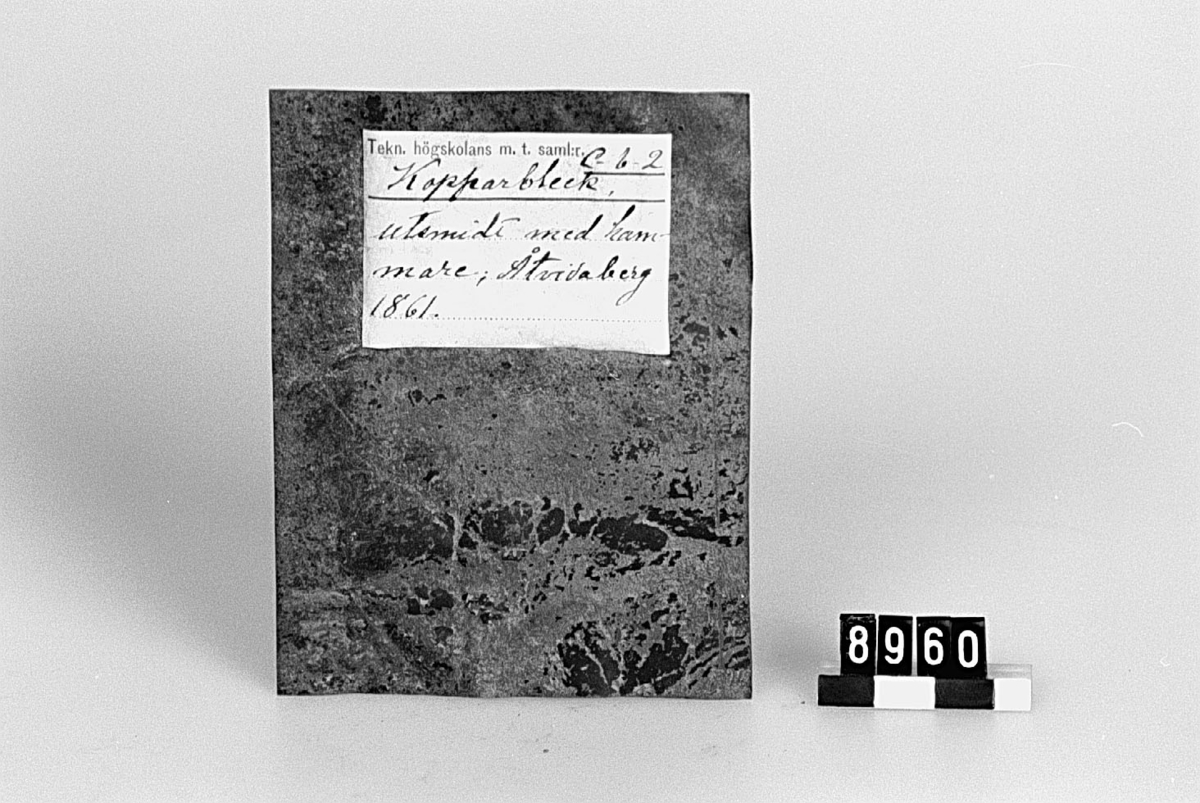 Tekn. högskolans m. t. saml:r.
C-b-2
Kopparbleck,
utsmidt med ham-
mare; Åtvidaberg
1861.
8960